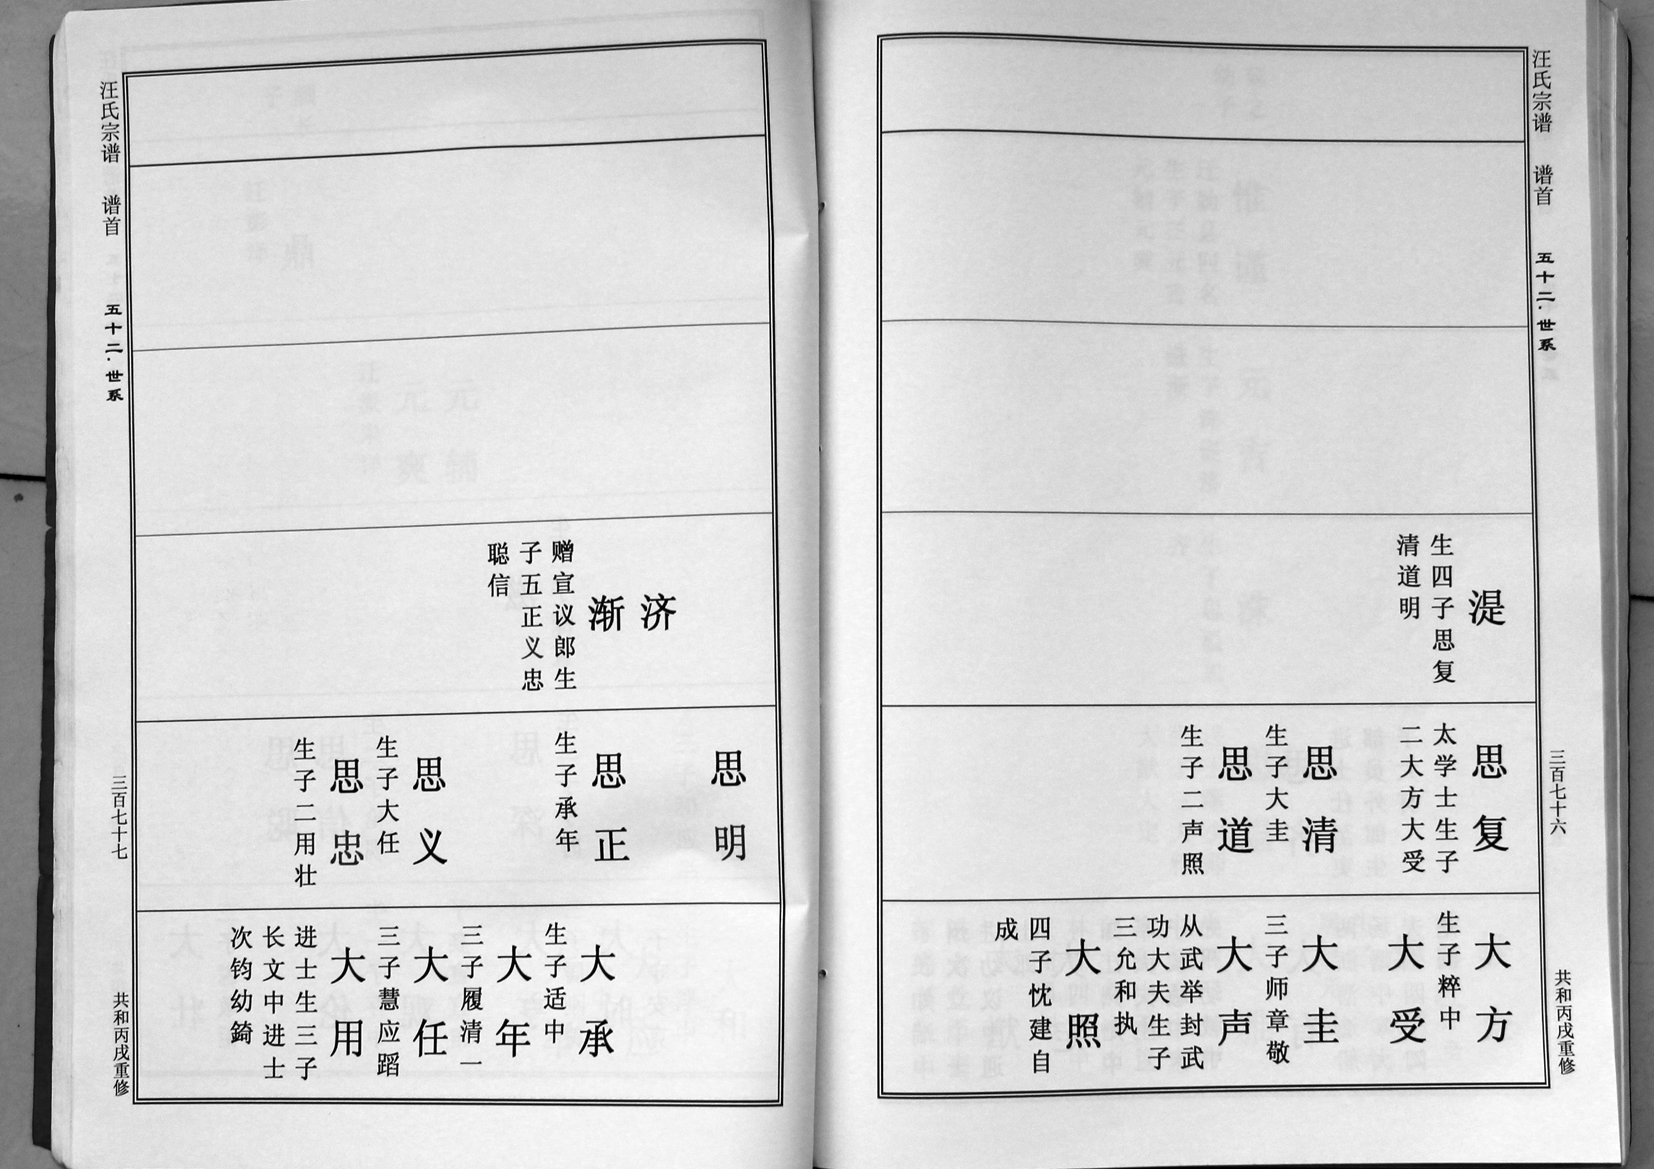 汪氏宗谱 谱首 五十二·世系
三百七十六
共和丙戌重修
湜
生四子思复
清道明
思复
太学士生子
二大方大受
思清
生子大圭
思道
生子二声照
大方
生子粹中
大受
大圭
三子师章敬
大声
从武举封武
功大夫生子
三允和执
大照
四子忱建自
成
汪氏宗谱 谱首 五十二·世系
三百七十七
共和丙戌重修
济
渐
赠宣议郎生
子五正义忠
聪信
思明
思正
生子承年
思义
生子大任
思忠
生子二用壮
大承
生子适中
大年
三子履清一
大任
三子慧应蹈
大用
进士生三子
长文中进士
次钧幼錡